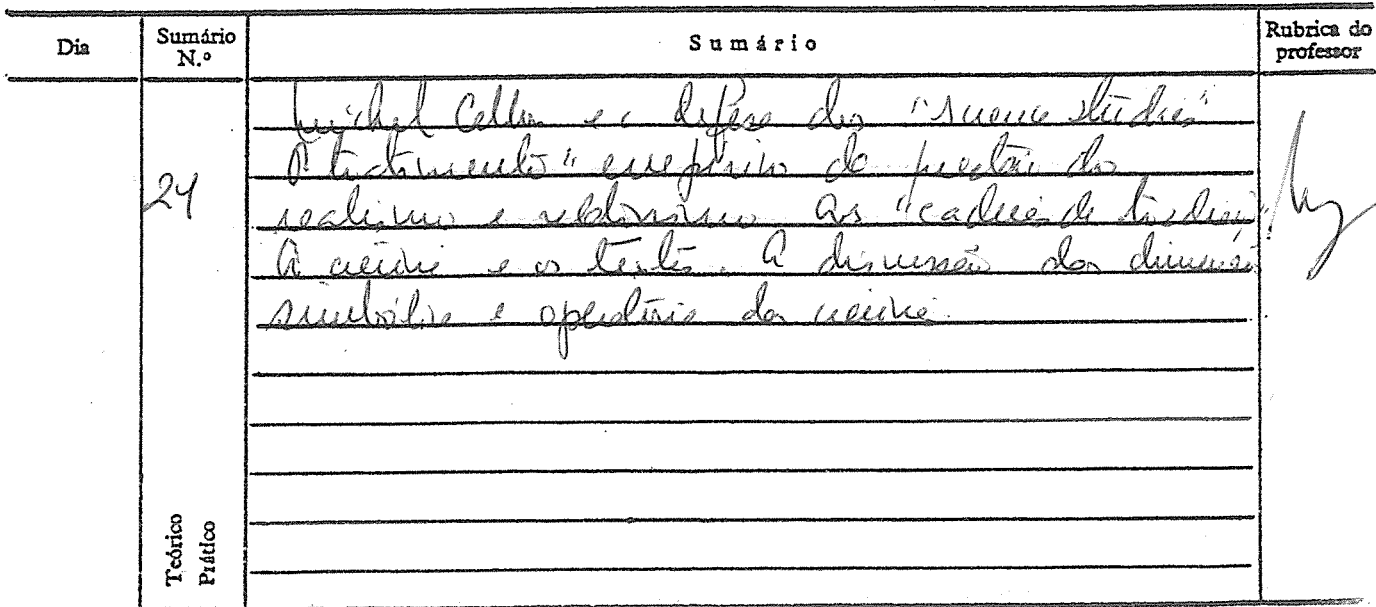 Dia
Sumário N.º
Sumário
Rubrica do professor
24
Michel Callon e a defesa dos "science studies"
O tratamento "empírico" da questão do
realismo e relativismo. As "cadeias de tradução".
A ciência e os textos. A discussão das dimensões
simbólica e operatória da ciência.
Teórico
Prático